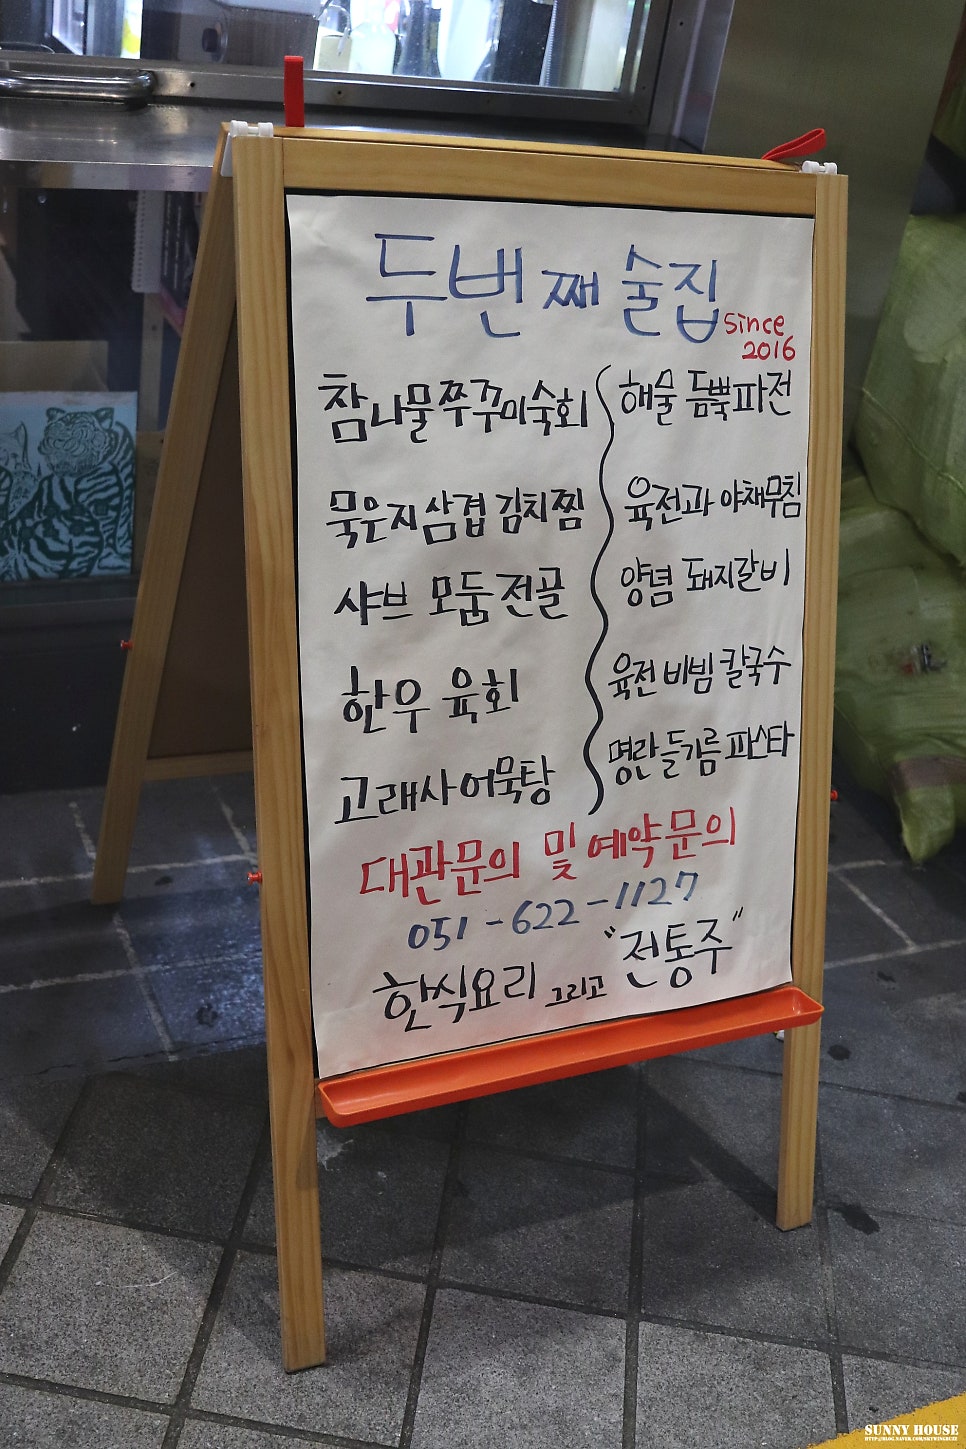 두번째 술집
since
2016
참나물쭈꾸미숙회
묵은지삼겹 김치찜
샤브 모둠전골
한우 육회
고래사어묵탕
해물 듬뿍파전
육전과 야채무침
양념 돼지갈비
육전 비빔 칼국수
명란들기름 파스타
대관문의 및 예약문의
051-622-1127
한식요리 그리고 "전통주"
SUNNY HOUSE